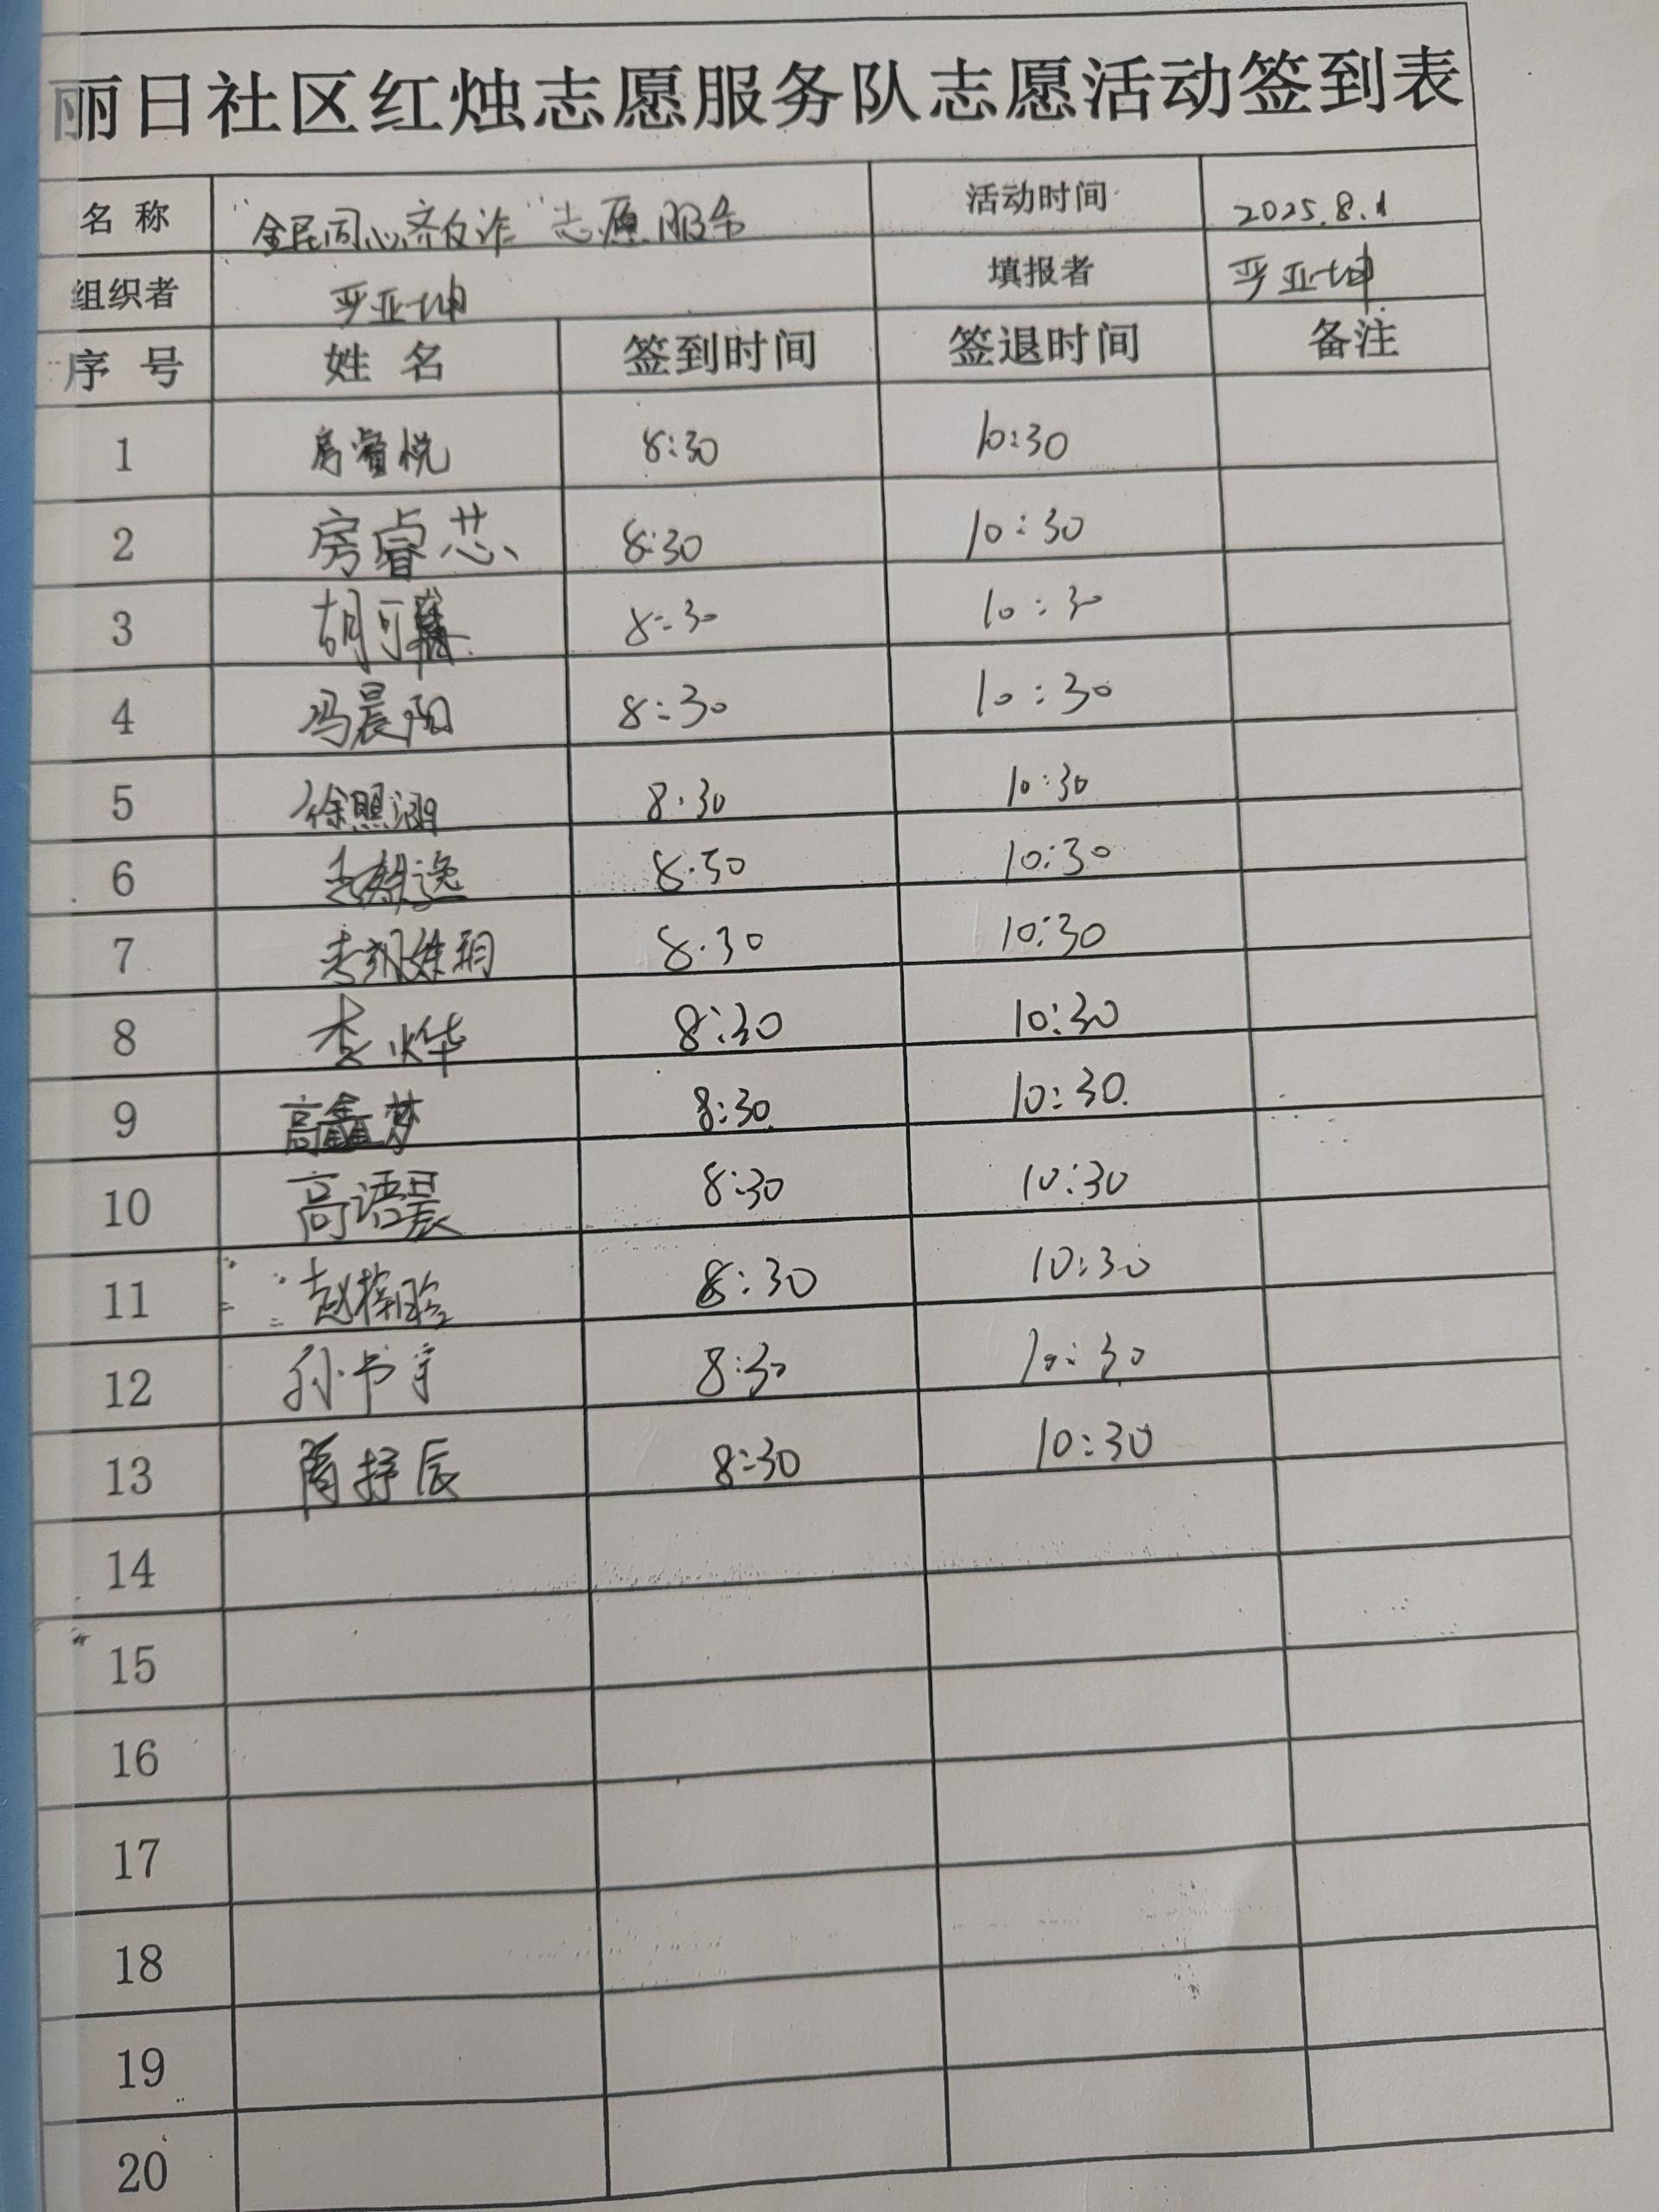 丽日社区红烛志愿服务队志愿活动签到表
名 称 “全民同心齐反诈”志愿服务 活动时间 2025.8.1
组织者 严亚坤 填报者 严亚坤
序 号 姓 名 签到时间 签退时间 备注
1 房睿悦 8:30 10:30
2 房睿芯 8:30 10:30
3 胡可 8:30 10:30
4 冯晨阳 8:30 10:30
5 徐熙涵 8:30 10:30
6 8:30 10:30
7 8:30 10:30
8 李烨 8:30 10:30
9 高鑫梦 8:30 10:30
10 高语晨 8:30 10:30
11 赵 8:30 10:30
12 孙书宇 8:30 10:30
13 辰 8:30 10:30
14
15
16
17
18
19
20